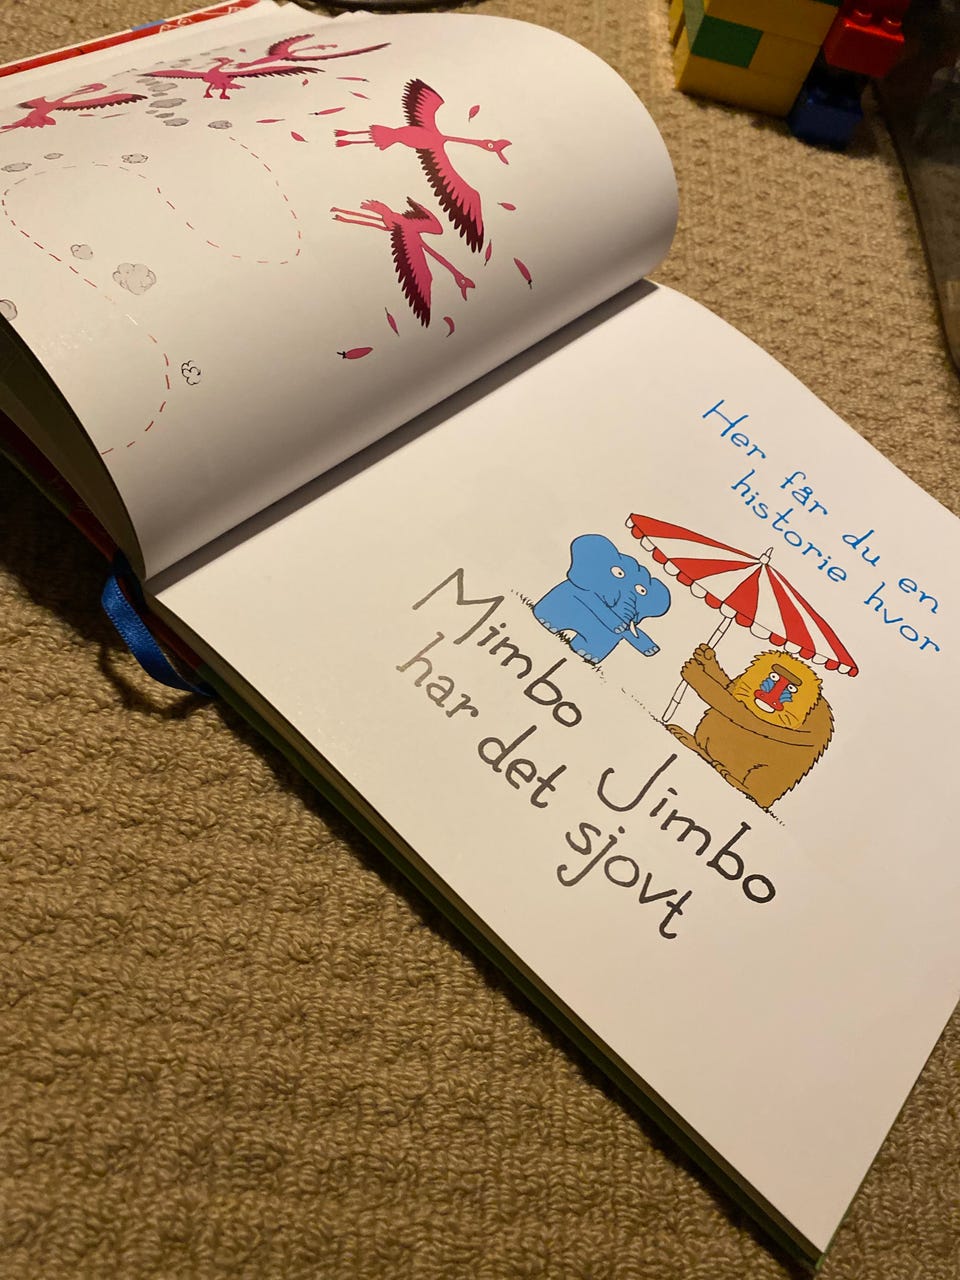 Her får du en
historie hvor
Mimbo Jimbo
har det sjovt